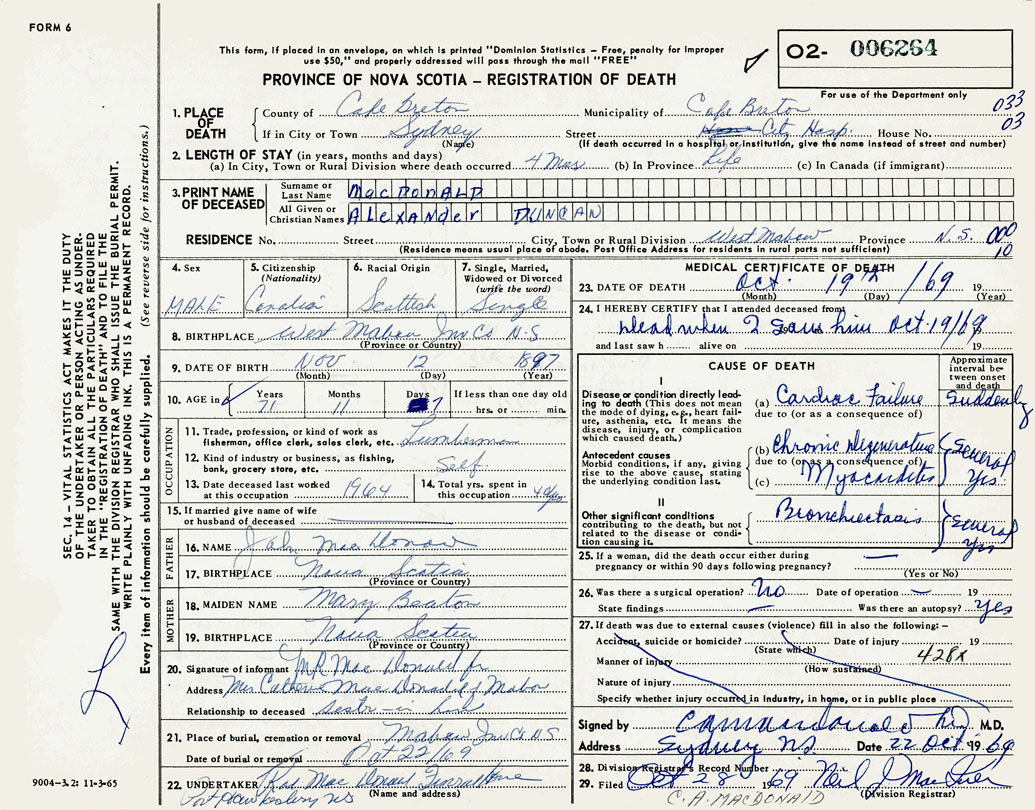 FORM 6
This form, if placed in an envelope, on which is printed "Dominion Statistics – Free, penalty for improper
use $50," and properly addressed will pass through the mail "FREE"
O2- 006264
PROVINCE OF NOVA SCOTIA – REGISTRATION OF DEATH
For use of the Department only
1. PLACE OF DEATH County of Cape Breton Municipality of Cape Breton 033
If in City or Town Sydney (Name) Street City Hosp. House No. 03
(If death occurred in a hospital or institution, give the name instead of street and number)
2. LENGTH OF STAY (in years, months and days)
(a) In City, Town or Rural Division where death occurred 4 Mos. (b) In Province Life (c) In Canada (if immigrant)
3. PRINT NAME OF DECEASED Surname or Last Name MacDONALD
All Given or Christian Names Alexander DUNCAN
RESIDENCE No. Street City, Town or Rural Division West Mabou Province N.S. 000
(Residence means usual place of abode. Post Office Address for residents in rural parts not sufficient) 10
4. Sex MALE
5. Citizenship (Nationality) Canadian
6. Racial Origin Scottish
7. Single, Married, Widowed or Divorced (write the word) Single
8. BIRTHPLACE West Mabou Inv Co N.S
(Province or Country)
9. DATE OF BIRTH Nov 12 1897
(Month) (Day) (Year)
10. AGE in Years 71 Months 11 Days 7 If less than one day old hrs. or min.
OCCUPATION
11. Trade, profession, or kind of work as fisherman, office clerk, sales clerk, etc. Lumberman
12. Kind of industry or business, as fishing, bank, grocery store, etc. Self.
13. Date deceased last worked at this occupation 1964
14. Total yrs. spent in this occupation 40 yrs
15. If married give name of wife or husband of deceased
FATHER
16. NAME John Mac Donald
17. BIRTHPLACE Nova Scotia
(Province or Country)
MOTHER
18. MAIDEN NAME Mary Beaton
19. BIRTHPLACE Nova Scotia
(Province or Country)
20. Signature of informant Mac Donald
Address Mrs Mac Donald Mabou
Relationship to deceased
21. Place of burial, cremation or removal Mabou Inv Co N.S
Date of burial or removal Oct 22/69
22. UNDERTAKER Mac Donald Funeral Home
(Name and address)
Port Hawkesbury NS
MEDICAL CERTIFICATE OF DEATH
23. DATE OF DEATH Oct. 19th /69 19
(Month) (Day) (Year)
24. I HEREBY CERTIFY that I attended deceased from
dead when I saw him Oct 19/69 19
and last saw h alive on 19
CAUSE OF DEATH
Approximate interval between onset and death
I
Disease or condition directly leading to death (This does not mean the mode of dying, e.g., heart failure, asthenia, etc. It means the disease, injury, or complication which caused death.)
(a) Cardiac Failure Suddenly
due to (or as a consequence of)
Antecedent causes
Morbid conditions, if any, giving rise to the above cause, stating the underlying condition last.
(b) Chronic degenerative Several
due to (or as a consequence of)
(c) Myocarditis Yrs.
II
Other significant conditions contributing to the death, but not related to the disease or condition causing it.
Bronchiectasis Several Yrs
25. If a woman, did the death occur either during pregnancy or within 90 days following pregnancy? —
(Yes or No)
26. Was there a surgical operation? No Date of operation – 19
State findings – Was there an autopsy? Yes
27. If death was due to external causes (violence) fill in also the following:–
Accident, suicide or homicide? Date of injury 19
(State which) 428X
Manner of injury
(How sustained)
Nature of injury
Specify whether injury occurred in industry, in home, or in public place
Signed by C A Macdonald M.D.
Address Sydney NS Date 22 Oct 1969
28. Division Registrar's Record Number
29. Filed Oct 28 1969 Neil J
(Division Registrar)
C. A. MACDONALD
SEC. 14 – VITAL STATISTICS ACT MAKES IT THE DUTY
OF THE UNDERTAKER OR PERSON ACTING AS UNDER-
TAKER TO OBTAIN ALL THE PARTICULARS REQUIRED
IN THE "REGISTRATION OF DEATH" AND TO FILE THE
SAME WITH THE DIVISION REGISTRAR WHO SHALL ISSUE THE BURIAL PERMIT.
WRITE PLAINLY WITH UNFADING INK. THIS IS A PERMANENT RECORD.
Every item of information should be carefully supplied. (See reverse side for instructions.)
9004-3.2: 11-3-65